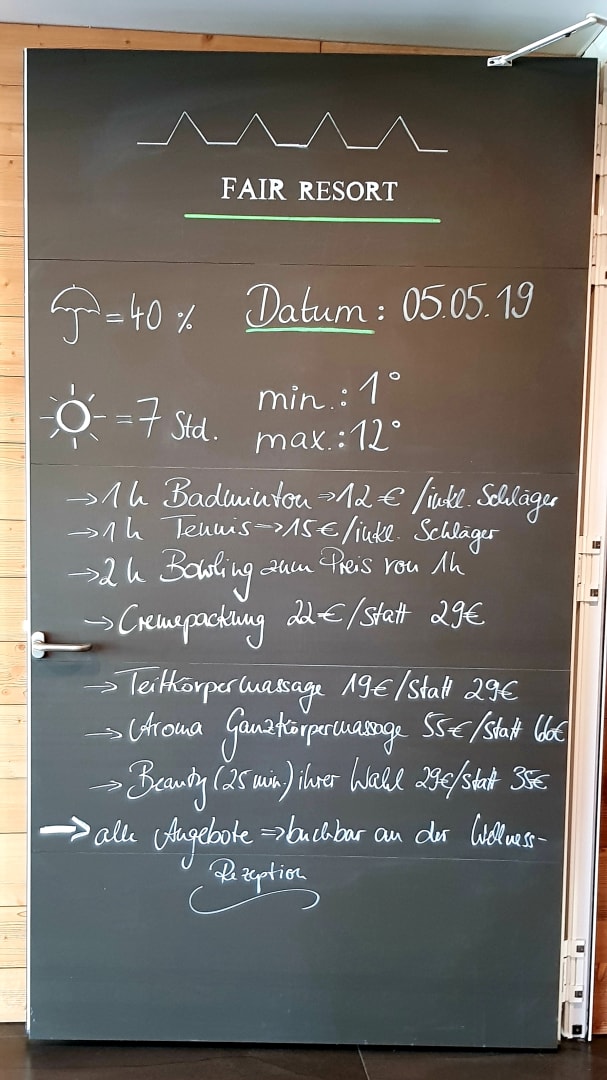 FAIR RESORT
= 40 % Datum: 05.05.19
= 7 Std. min.: 1°
max.: 12°
→ 1 h Badminton ⇒ 12 € /inkl. Schläger
→ 1 h Tennis → 15 € /inkl. Schläger
→ 2 h Bowling zum Preis von 1h
→ Cremepackung 22 € / statt 29€
→ Teilkörpermassage 19€ / statt 29€
→ Aroma Ganzkörpermassage 55€ / statt 60€
→ Beauty (25 min) ihrer Wahl 29€ / statt 35€
→ alle Angebote ⇒ buchbar an der Wellness-
Rezeption